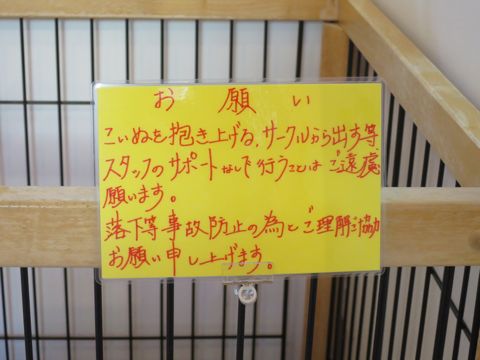 お願い
こいぬを抱き上げる、サークルから出す等、
スタッフのサポートなしで行うことはご遠慮
願います。
落下等事故防止の為とご理解ご協力
お願い申し上げます。